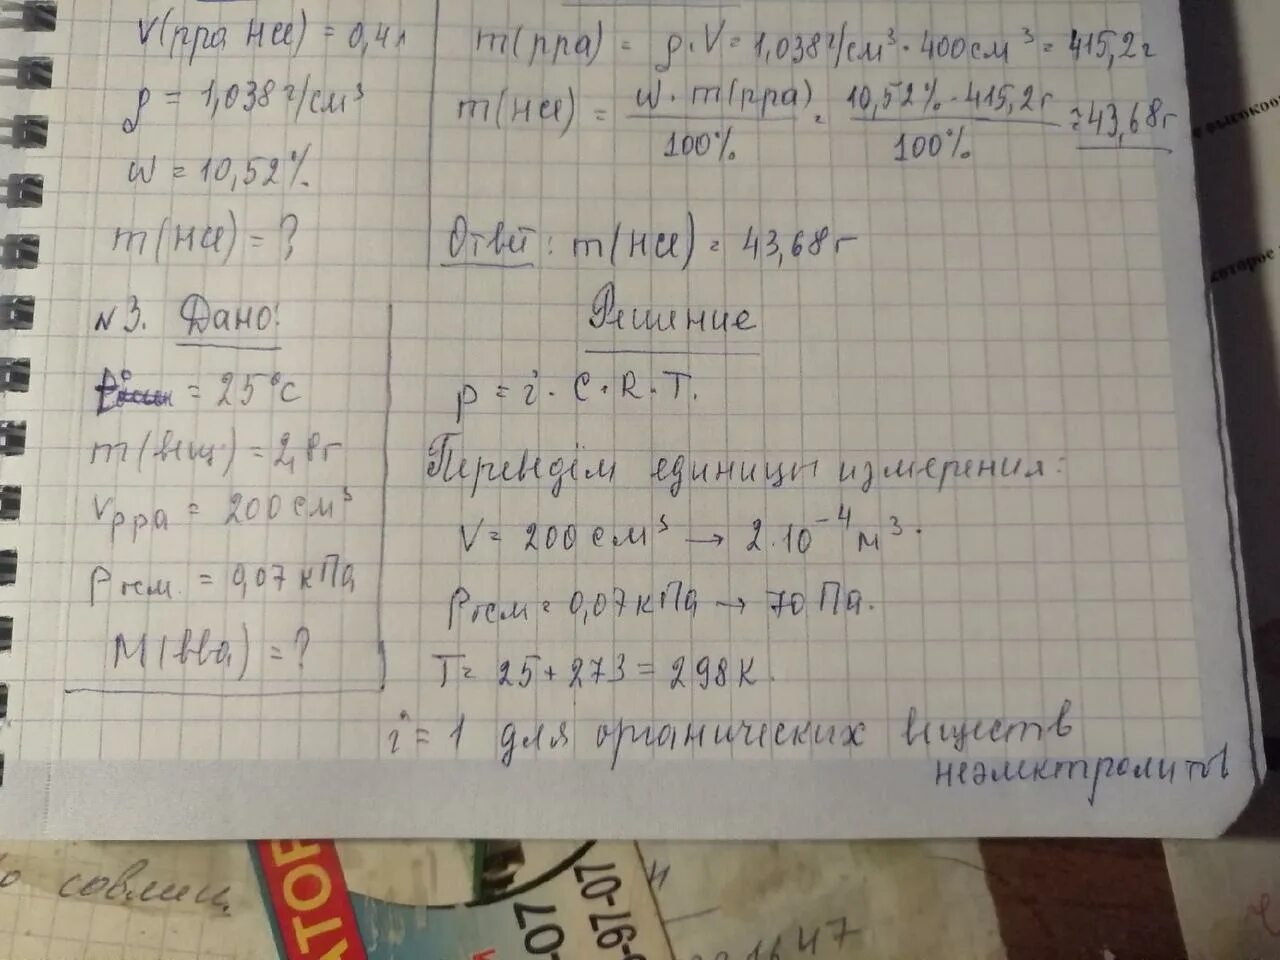 V(рра HCl) = 0,4л
ρ = 1,038 г/см³
w = 10,52%
m(HCl) = ?
m(рра) = ρ·V = 1,038 г/см³ · 400 см³ = 415,2 г
m(HCl) = w · m(рра) / 100% = 10,52% · 415,2 г / 100% = 43,68 г
Ответ: m(HCl) = 43,68 г
N3. Дано:
= 25°C
m(вещ.) = 2,8г
Vрра = 200 см³
Pосм. = 0,07 кПа
M(вва) = ?
Решение
p = i · C · R · T.
Переведём единицы измерения:
V = 200 см³ → 2·10⁻⁴ м³.
Pосм = 0,07 кПа → 70 Па.
T = 25 + 273 = 298 K.
i = 1 для органических веществ
неэлектролитов
высокоо
которое
о совмещ.
АТОР
07-07
6-97-07
1647